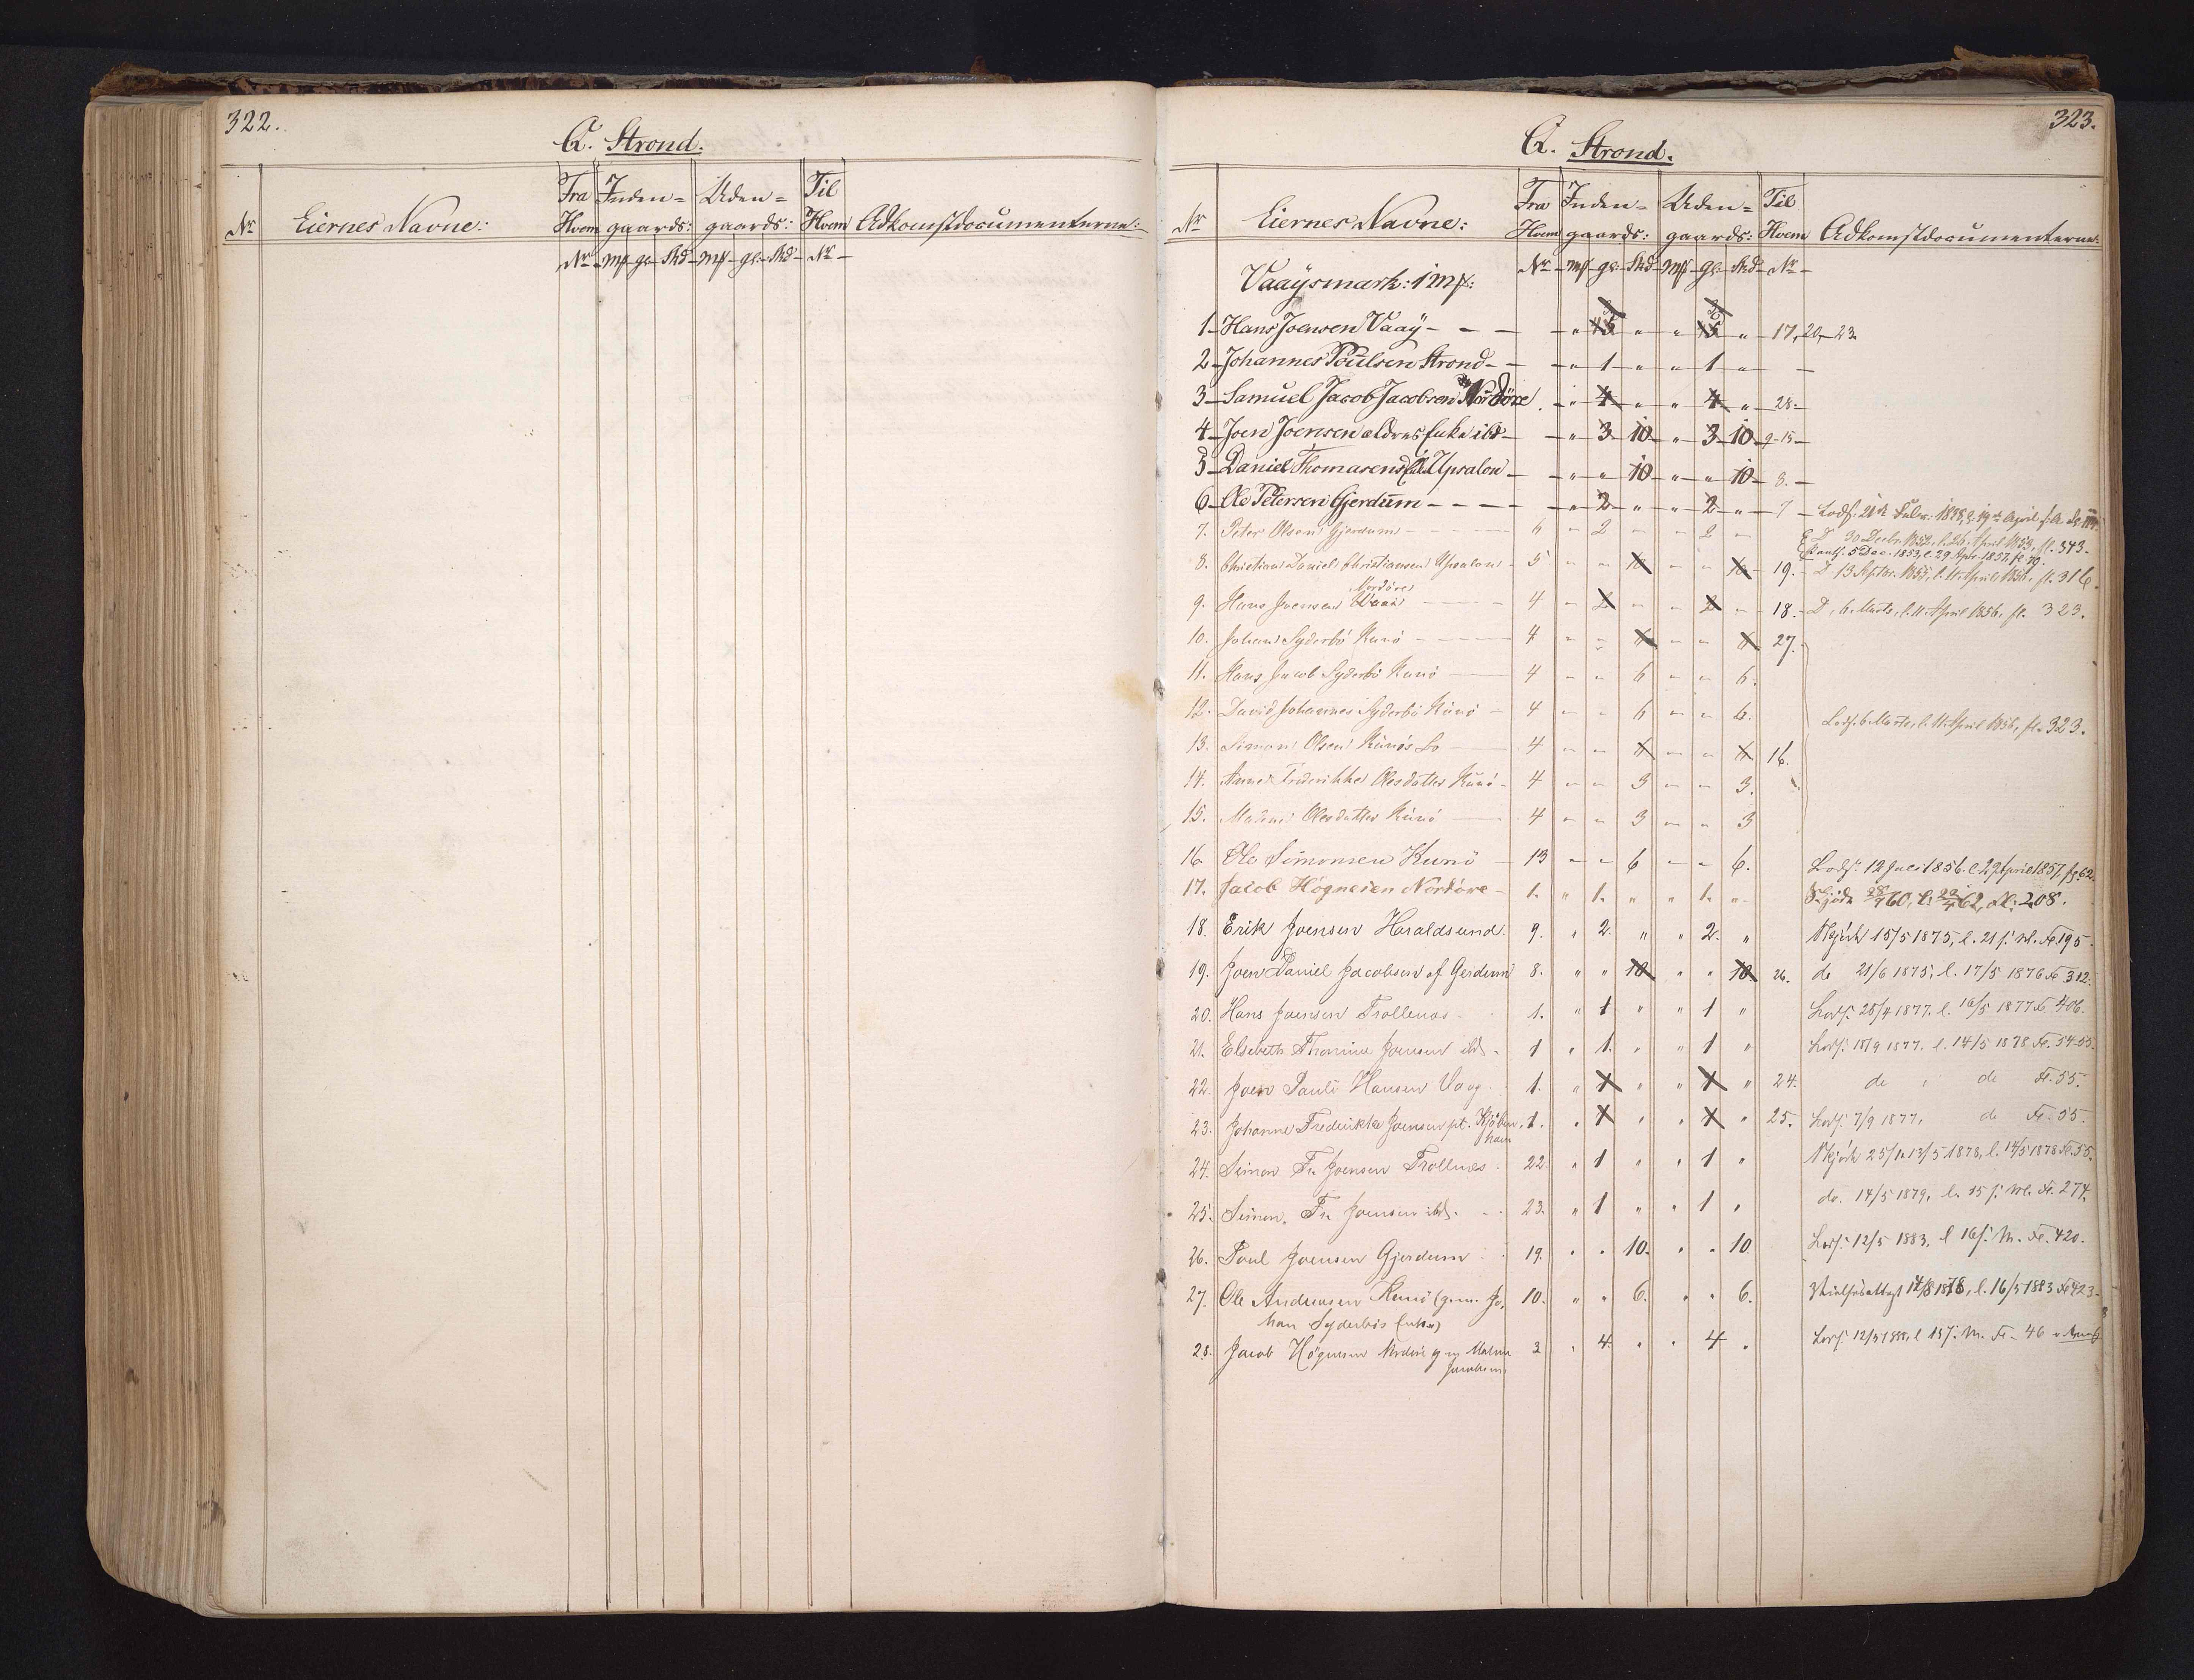 322.
A. Strond.
Nr Eiernes Navne: Fra Hvem Inden= gaards: Uden= gaards: Til Hvem Adkomstdocumenterne:
Nr mk gl. Skd mk gl. Skd Nr
323.
A. Strond.
Nr Eiernes Navne: Fra Hvem Inden= gaards: Uden= gaards: Til Hvem Adkomstdocumenterne:
Nr mk gl. Skd mk gl. Skd Nr
Vaaÿsmark: 1 mk:
1 Hans Joensen Vaaÿ 5 5 17, 20, 23
2 Johannes Poulsen Strond 1 1
3 Samuel Jacob Jacobsen Nordöre 4 4 28
4 Joen Joensen ældres Enke ibd 3 10 3 10 9-15
5 Daniel Thomasens Upsalon 10 10 8.
6 Ole Petersen Gjerdum 2 2 7
7. Peter Olsen Gjerdum 6 2 2 D 30 Decbr. 1852, l. 26 April 1853, fl. 343.
8. Christian Daniel Christiansen Upsalon 5 10 10 19. D 13 Septbr. 1855, l. 11 April 1856, fl. 316.
9. Hans Joensen Vaaÿ Nordöre 4 2 2 18. D. 6. Marts, l. 11. April 1856, fl. 323.
10. Johan Syderbö Kunö 4 6 6 27.
11. Hans Jacob Syderbö Kunö 4 6 6.
12. David Johannes Syderbö Kunö 4 6 6. Lodf. 6. Marts, l. 11. April 1856, fl. 323.
13. Simon Olsen Kunö 4 6 6 16.
14. Anne Frederikke Olesdatter Kunö 4 3 3.
15. Malene Olesdatter Kunö 4 3 3
16 Ole Simonsen Kunö 13 6 6. Lodf: 12 Juli 1856. l. 29 April 1857, fl. 62.
17. Jacob Högnesen Nordöre 1. 1. 1. Skjöde 60, l. 62, fl: 208.
18. Erik Joensen Haraldsund 9. 2. 2. Skjöde 15/5 1875, l. 21 s. M. Fl. 195.
19. Joen Daniel Jacobsen af Gerdum 8. 10 10 26. do 21/6 1875, l. 17/5 1876 Fl 312.
20. Hans Joensen Trollenæs 1. 1 1 Lodf. 25/4 1877, l. 16/5 1877 Fl. 406.
21. Elsebeth Thomine Joensen ibd. 1 1. 1 Lodf. 18/9 1877. l. 14/5 1878 Fl. 54-55.
22. Joen Pauli Hansen Vaag 1. 1 1 24. do do Fl. 55.
23. Johanne Frederikke Joensen pt. Kjöben= havn 1. 1 1 25. Lodf. 7/9 1877, do Fl. 55.
24. Simon Fr. Joensen Trollnæs 22. 1 1 Skjöde 25/1 13/5 1878, l. 14/5 1878 Fl. 55.
25. Simon Fr. Joensen ibd. 23. 1 1 do. 14/5 1879, l. 15 s. M. Fl. 274.
26. Poul Joensen Gjerdum 19. 10. 10 Lodf: 12/5 1883, l 16 s. M. Fl. 420.
27. Ole Andreasen Kunö (g.m. Jo=
han Syderbös Enke) 10. 6. 6. Vielsesattest l. 16/5 1883 Fl 423
28. Jacob Högnesen Nordöre g m Malene
Jacobsen 3 4. 4 Lodf: 12/5 l 15 s. M. Fl. 46